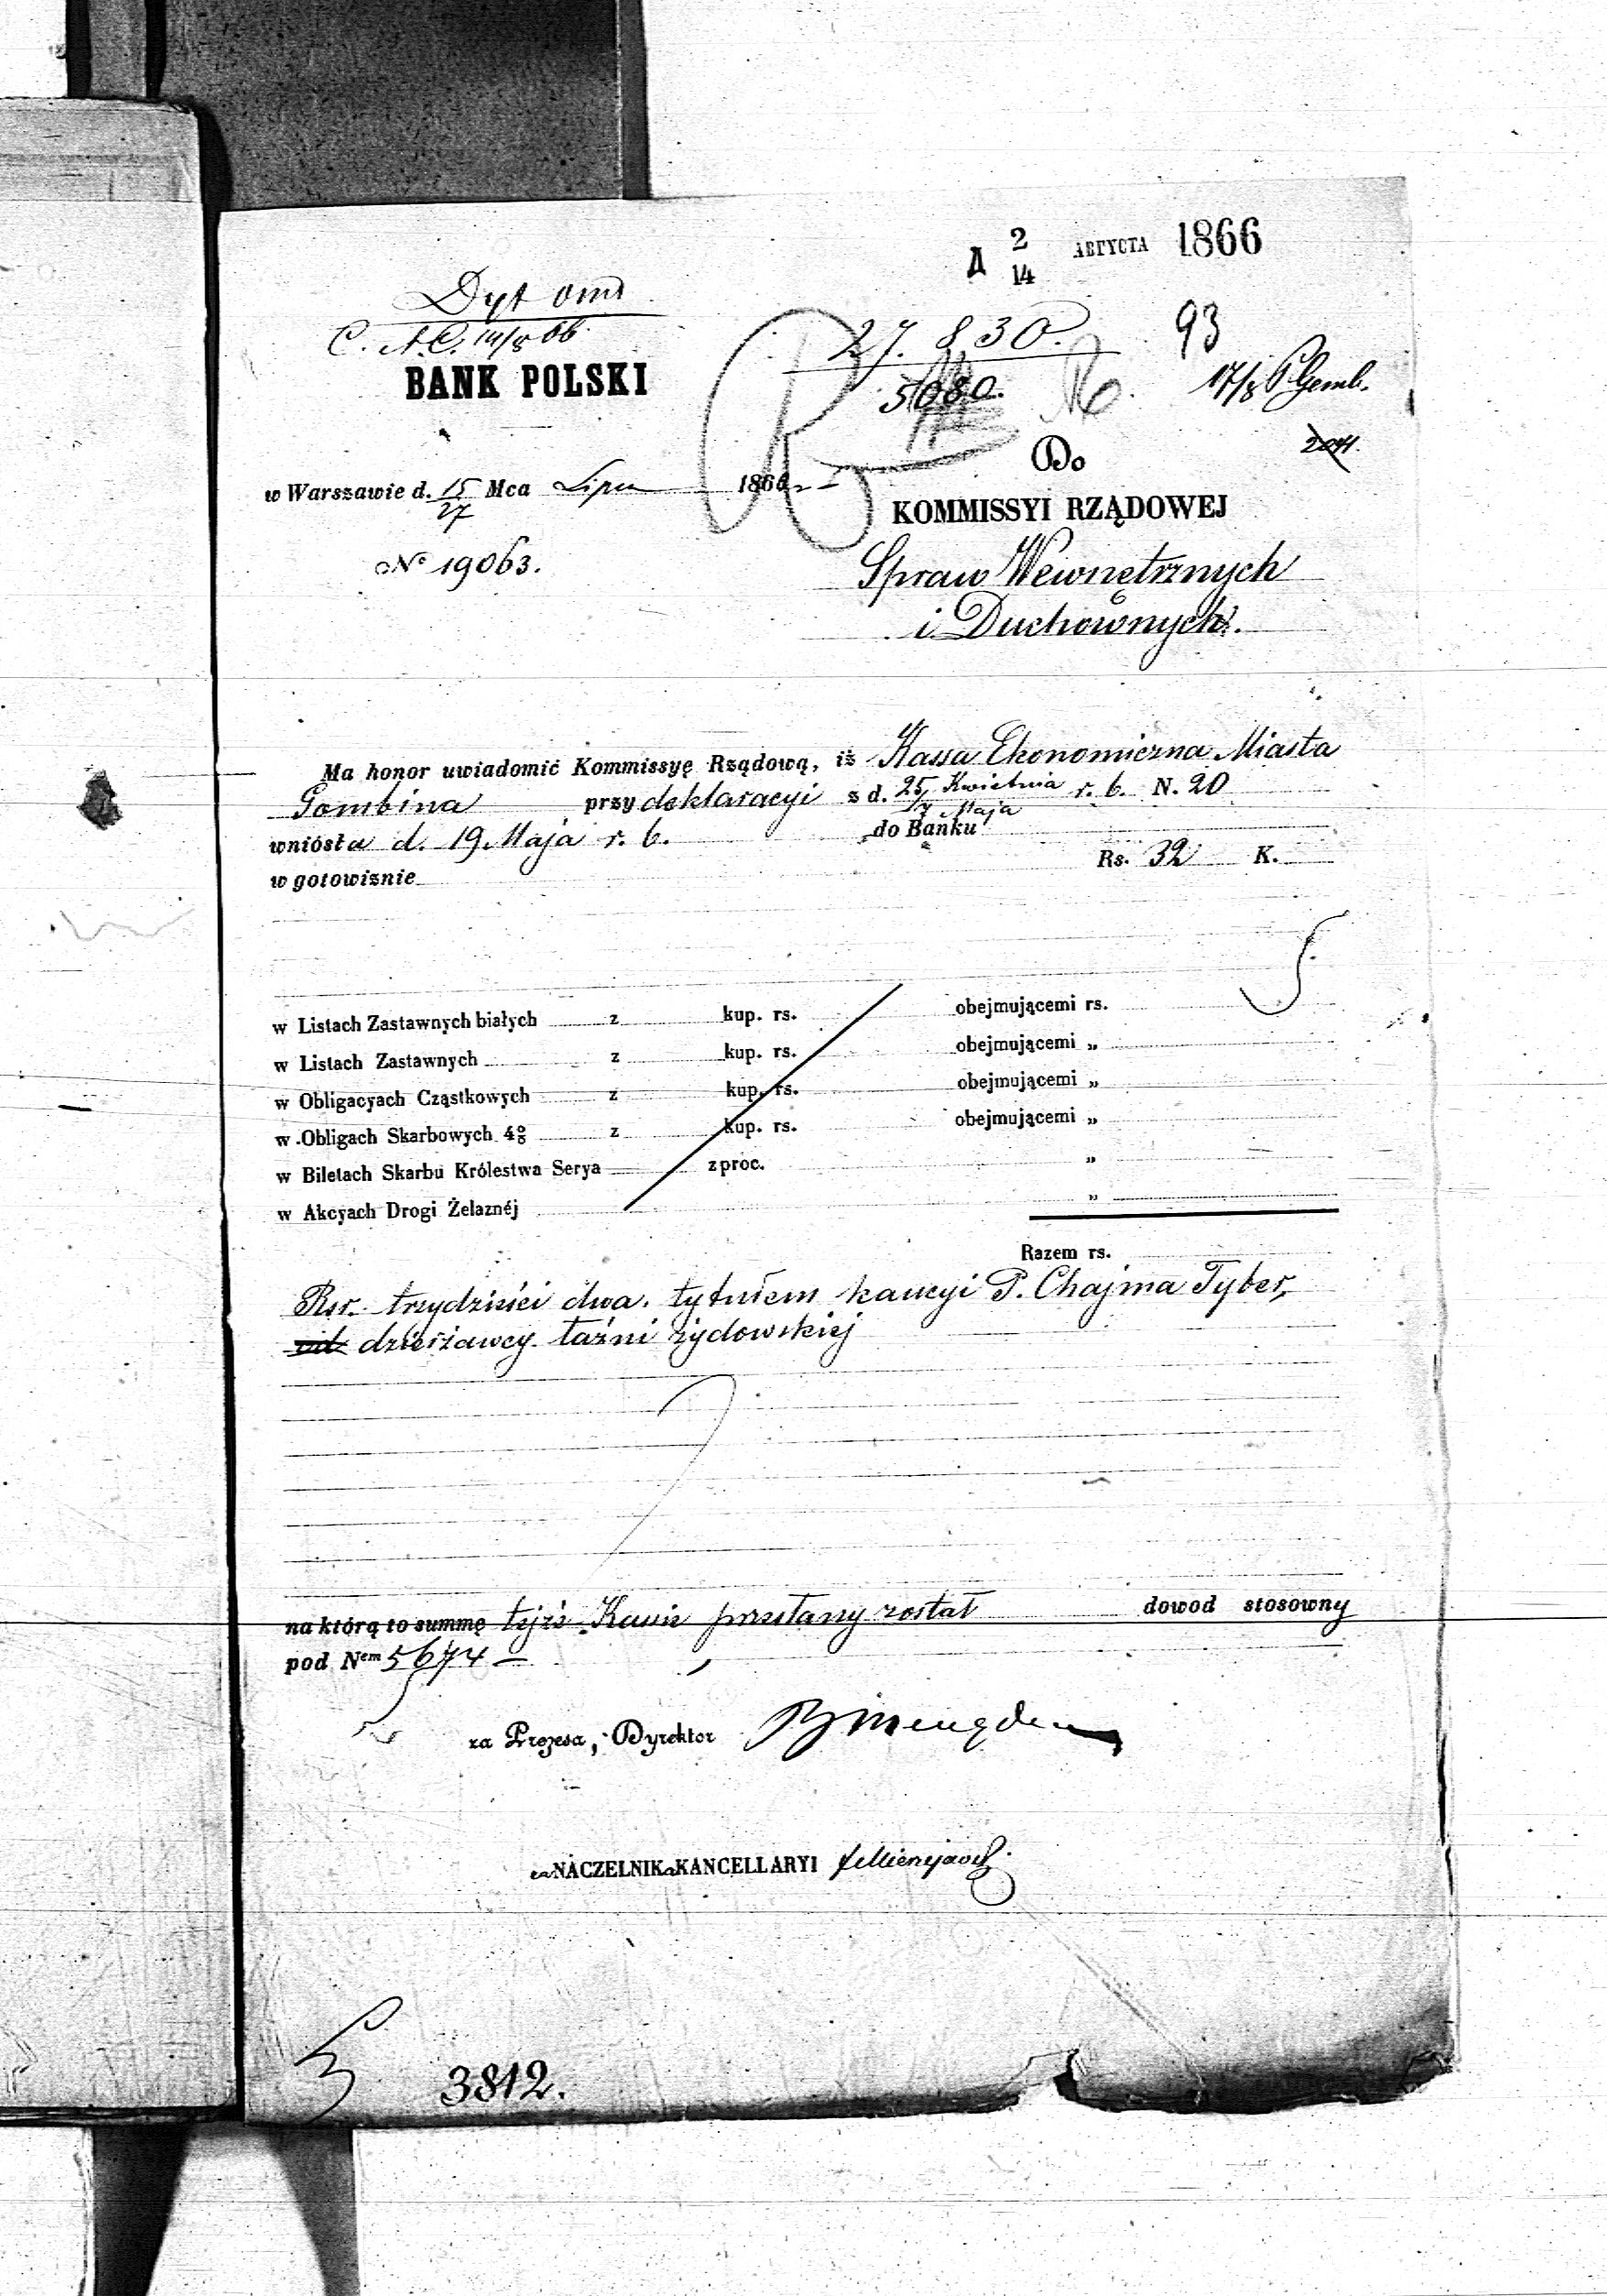 Д 2/14 АВГУСТА 1866
C. 14/8 66.
27. 830.
93
5080.
17/8
BANK POLSKI
Do
w Warszawie d. 15/27 Mca Lipca 1866
KOMMISSYI RZĄDOWEJ
No 19063.
Spraw Wewnętrznych
i Duchownych.
Ma honor uwiadomić Kommissyę Rządową, iż Kassa Ekonomiczna Miasta
Gombina przy deklaracyi z d. 25 Kwietnia / 7 Maja r. b. N. 20
wniósła d. 19 Maja r. b. do Banku
w gotowiznie Rs. 32 K.
w Listach Zastawnych białych z kup. rs. obejmującemi rs.
w Listach Zastawnych z kup. rs. obejmującemi „
w Obligacyach Cząstkowych z kup. rs. obejmującemi „
w Obligach Skarbowych 4% z kup. rs. obejmującemi „
w Biletach Skarbu Królestwa Serya z proc. „
w Akcyach Drogi Żelaznéj „
Razem rs.
Rsr. trzydzieści dwa. tytułem kaucyi P. Chajma Tyber,
dzierżawcy łaźni żydowskiej
na którą to summę tejże Kassie przesłany został dowod stosowny
pod Nem 5674
za Prezesa, Dyrektor
NACZELNIK KANCELLARYI
3812.